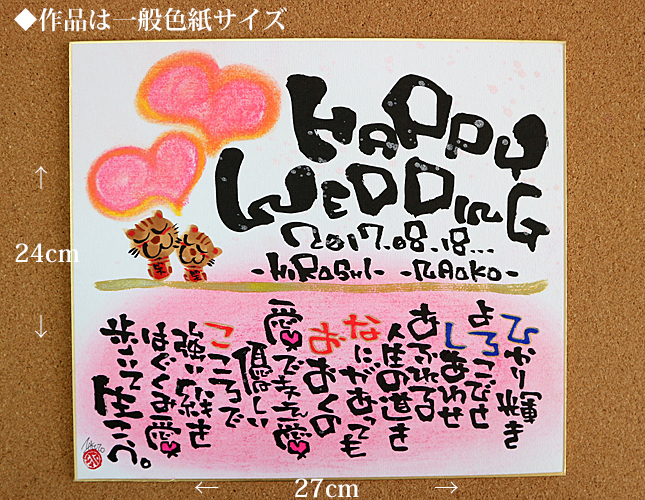 ◆作品は一般色紙サイズ
HAPPY
WEDDING
2017.08.18...
-HiROSHI- -NAOKO-
ひかり輝き
よろこびと
しあわせ
あふれる
人生の道を
なにがあっても
おおくの
愛で支え愛
優しい
こころで
強い絆を
はぐくみ愛
歩いて生こう。
↑
24cm
↓
← 27cm →